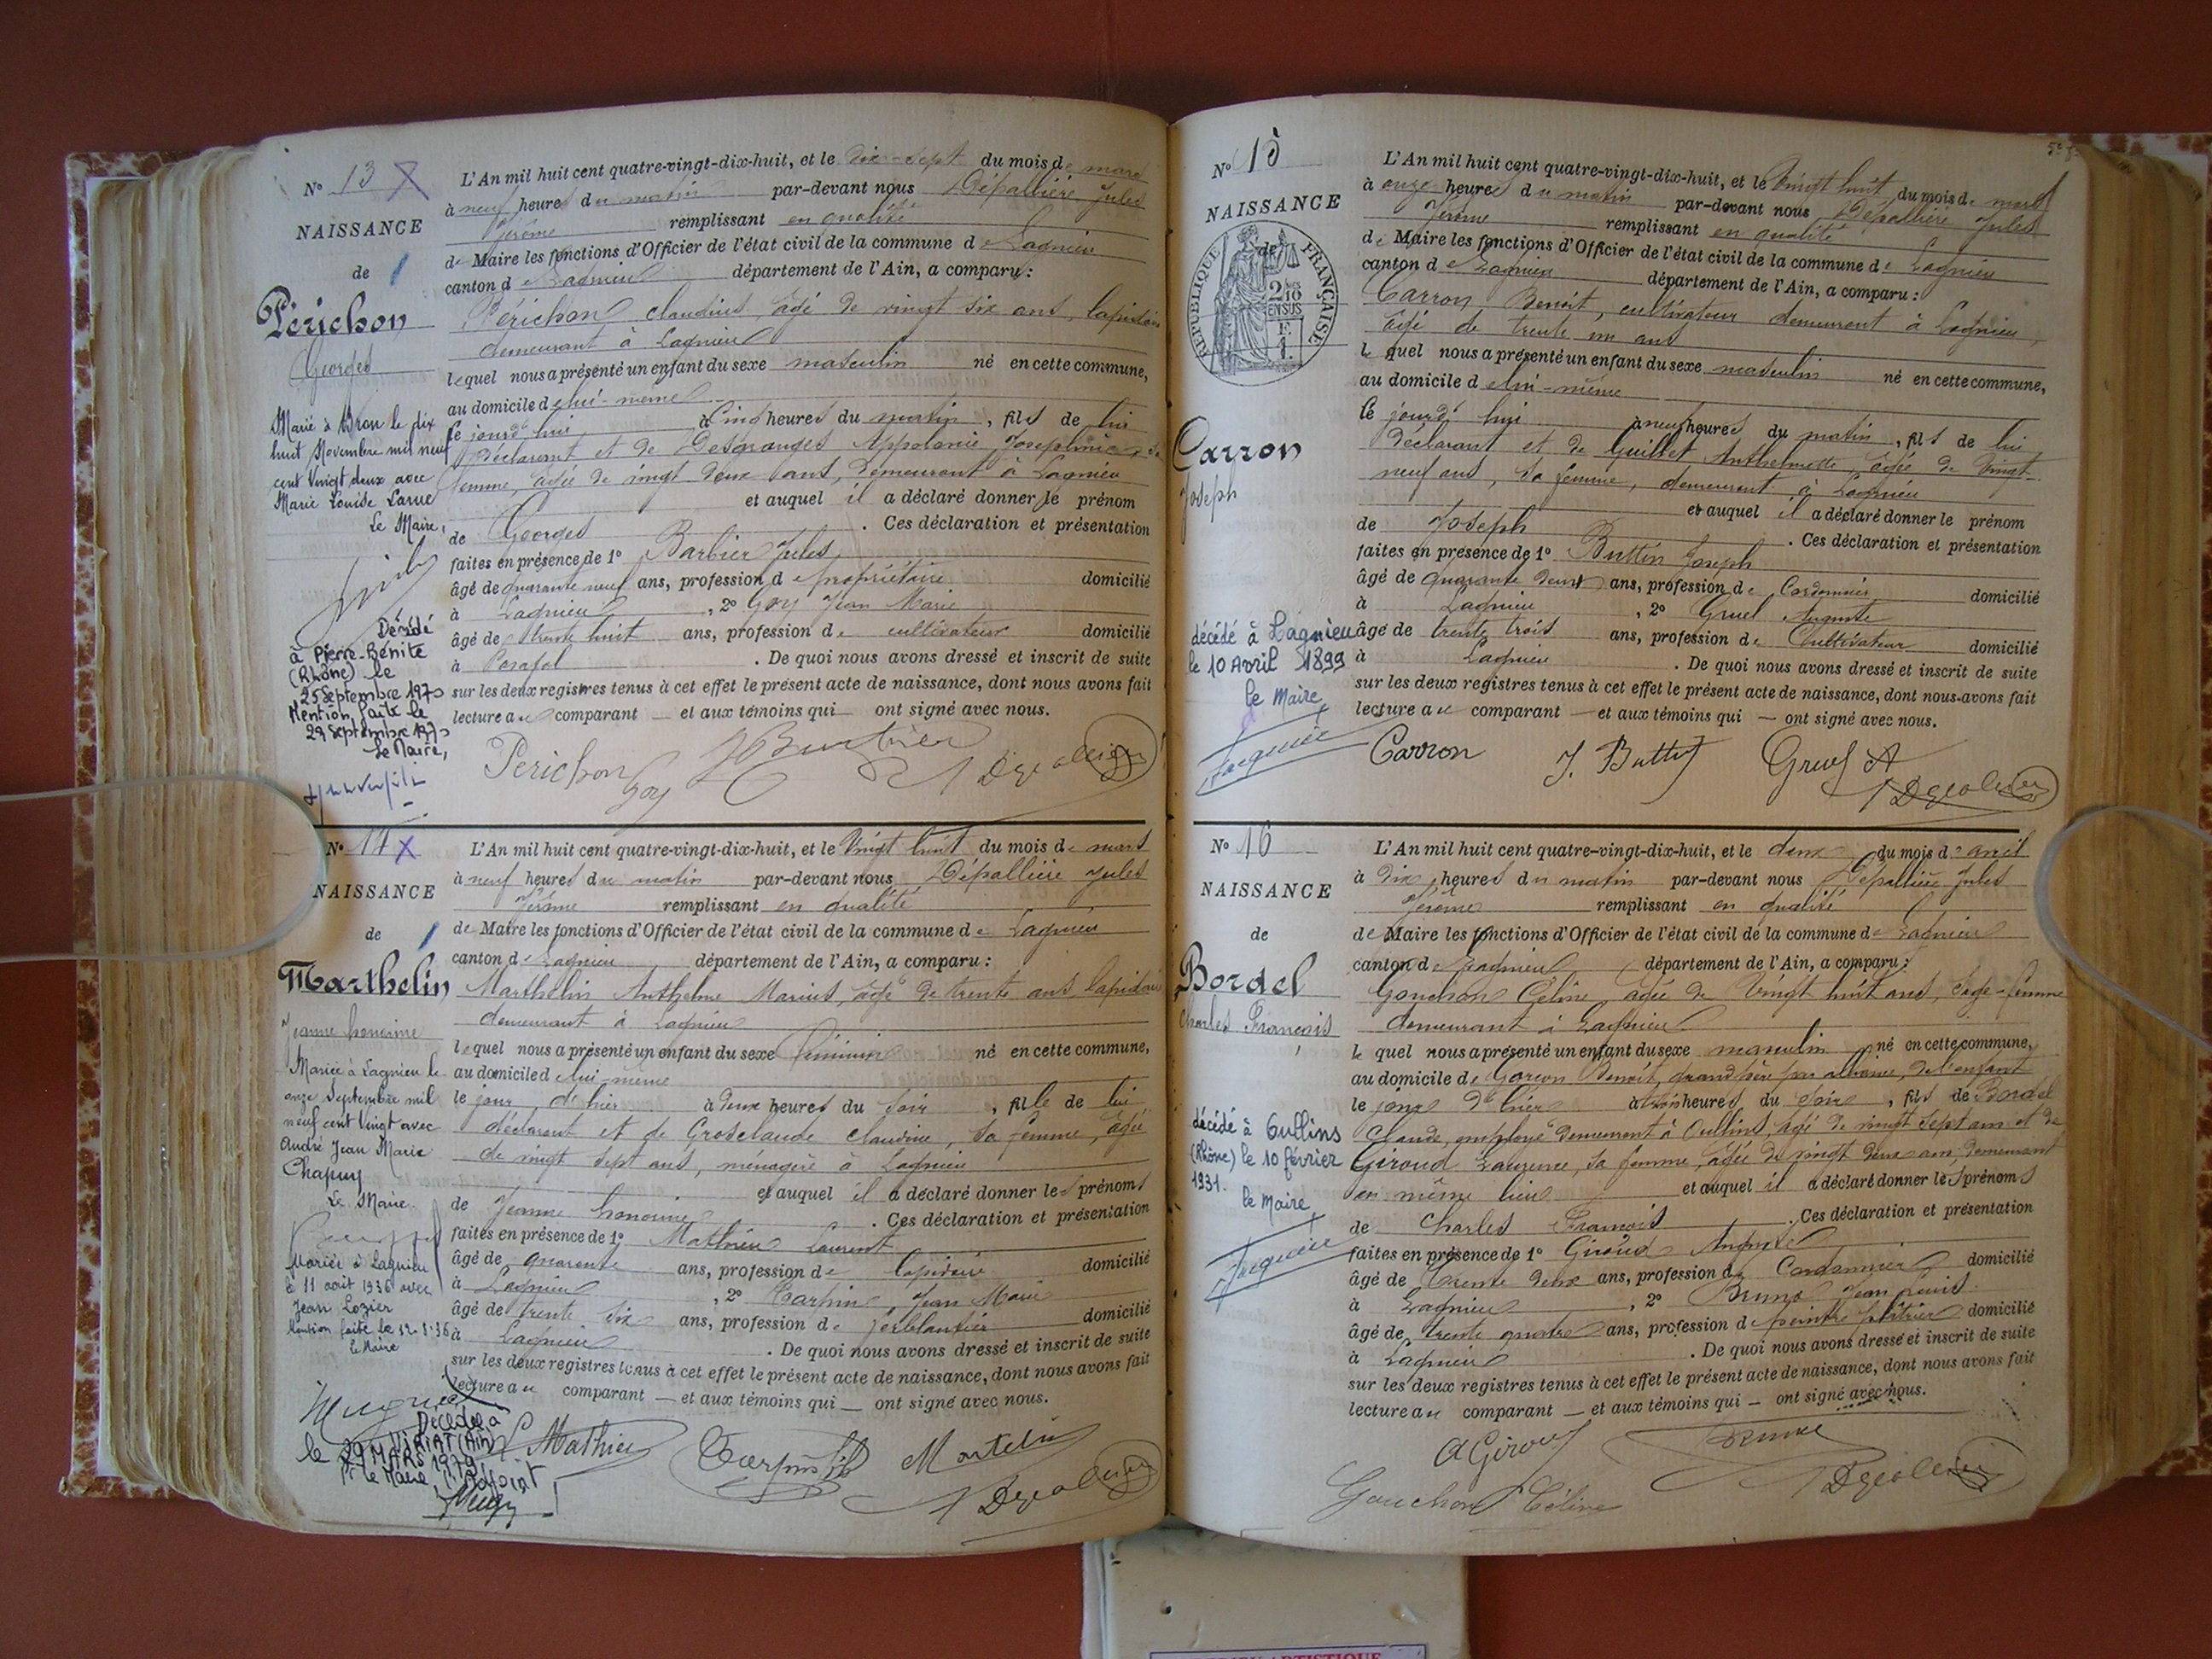 N° 13 X
NAISSANCE
de 1
Périchon
Georges
Marié à Bron le dix
huit Novembre mil neuf
cent Vingt deux avec
Marie Louise Larue
Le Maire,
Décédé
à Pierre-Bénite
(Rhône) le
25 Septembre 1973
Mention faite le
29 Septembre 1973
Le Maire,
L'An mil huit cent quatre-vingt-dix-huit, et le dix-sept du mois de mars
à neuf heures du matin par-devant nous Dépallière Jules
Jérôme remplissant en qualité
de Maire les fonctions d'Officier de l'état civil de la commune de Lagnieu
canton de Lagnieu département de l'Ain, a comparu :
Périchon Claudius, âgé de vingt six ans, lapidaire
demeurant à Lagnieu
lequel nous a présenté un enfant du sexe masculin né en cette commune,
au domicile de lui-même
le jourd'hui à cinq heures du matin, fils de lui
déclarant et de Desgranges Appolonie Joséphine, sa
femme, âgée de vingt deux ans, demeurant à Lagnieu
et auquel il a déclaré donner le prénom
de Georges . Ces déclaration et présentation
faites en présence de 1° Barbier Jules
âgé de quarante neuf ans, profession de propriétaire domicilié
à Lagnieu, 2° Goy Jean Marie
âgé de trente huit ans, profession de cultivateur domicilié
à Posafol . De quoi nous avons dressé et inscrit de suite
sur les deux registres tenus à cet effet le présent acte de naissance, dont nous avons fait
lecture au comparant — et aux témoins qui — ont signé avec nous.
Perichon
Goy
N° 14 X
NAISSANCE
de 1
Marthelin
Jeanne honorine
Mariée à Lagnieu le
onze Septembre mil
neuf cent Vingt avec
André Jean Marie
Chapuy
Le Maire.
Mariée à Lagnieu
le 11 août 1936 avec
Jean Lozier
Mention faite le
le Maire
Décédée à
VIRIAT (Ain)
le 29 MARS 1979
Pr le Maire l'Adjoint
L'An mil huit cent quatre-vingt-dix-huit, et le Vingt huit du mois de mars
à neuf heures du matin par-devant nous Dépallière Jules
Jérôme remplissant en qualité
de Maire les fonctions d'Officier de l'état civil de la commune de Lagnieu
canton de Lagnieu département de l'Ain, a comparu :
Marthelin Anthelme Marius, âgé de trente ans, lapidaire
demeurant à Lagnieu
lequel nous a présenté un enfant du sexe féminin né en cette commune,
au domicile de lui-même
le jour d'hier à deux heures du soir, fille de lui
déclarant et de Grosclaude Claudine, sa femme, âgée
de vingt sept ans, ménagère à Lagnieu
et auquel il a déclaré donner les prénoms
de Jeanne honorine . Ces déclaration et présentation
faites en présence de 1° Mathieu Laurent
âgé de quarante ans, profession de lapidaire domicilié
à Lagnieu, 2° Carpin Jean Marie
âgé de trente six ans, profession de ferblantier domicilié
à Lagnieu . De quoi nous avons dressé et inscrit de suite
sur les deux registres tenus à cet effet le présent acte de naissance, dont nous avons fait
lecture au comparant — et aux témoins qui — ont signé avec nous.
L. Mathieu
N° 15
NAISSANCE
de
RÉPUBLIQUE FRANÇAISE
2/10 EN SUS
Carron
Joseph
décédé à Lagnieu
le 10 Avril 1899
le Maire
L'An mil huit cent quatre-vingt-dix-huit, et le Vingt huit du mois de mars
à onze heures du matin par-devant nous Dépallière Jules
Jérôme remplissant en qualité
de Maire les fonctions d'Officier de l'état civil de la commune de Lagnieu
canton de Lagnieu département de l'Ain, a comparu :
Carron Benoit, cultivateur demeurant à Lagnieu,
âgé de trente un ans
lequel nous a présenté un enfant du sexe masculin né en cette commune,
au domicile de lui-même
le jourd'hui à neuf heures du matin, fils de lui
déclarant et de Guillet Anthelmette, âgée de vingt-
neuf ans, sa femme, demeurant à Lagnieu
et auquel il a déclaré donner le prénom
de Joseph . Ces déclaration et présentation
faites en présence de 1° Buttin Joseph
âgé de quarante deux ans, profession de Cordonnier domicilié
à Lagnieu, 2° Gruel Auguste
âgé de trente trois ans, profession de Cultivateur domicilié
à Lagnieu . De quoi nous avons dressé et inscrit de suite
sur les deux registres tenus à cet effet le présent acte de naissance, dont nous avons fait
lecture au comparant — et aux témoins qui — ont signé avec nous.
Carron
Gruel A
N° 16
NAISSANCE
de
Bordel
Charles François
décédé à Oullins
(Rhône) le 10 février
1931.
le Maire
L'An mil huit cent quatre-vingt-dix-huit, et le deux du mois de avril
à dix heures du matin par-devant nous Dépallière Jules
Jérôme remplissant en qualité
de Maire les fonctions d'Officier de l'état civil de la commune de Lagnieu
canton de Lagnieu département de l'Ain, a comparu :
Gouchon Céline, agée de Vingt huit ans, sage-femme
demeurant à Lagnieu
le quel nous a présenté un enfant du sexe masculin né en cette commune,
au domicile de Benoit, grand père par alliance, de l'enfant
le jour d'hier à trois heures du soir, fils de Bordel
Claude, employé demeurant à Oullins, âgé de vingt sept ans et de
Giroud sa femme, agée de vingt deux ans, demeurant
en même lieu et auquel il a déclaré donner les prénoms
de Charles François . Ces déclaration et présentation
faites en présence de 1° Giroud
âgé de trente deux ans, profession de Cordonnier domicilié
à Lagnieu, 2° Bruno Jean Louis
âgé de trente quatre ans, profession de peintre plâtrier domicilié
à Lagnieu . De quoi nous avons dressé et inscrit de suite
sur les deux registres tenus à cet effet le présent acte de naissance, dont nous avons fait
lecture au comparant — et aux témoins qui — ont signé avec nous.
Gouchon Céline